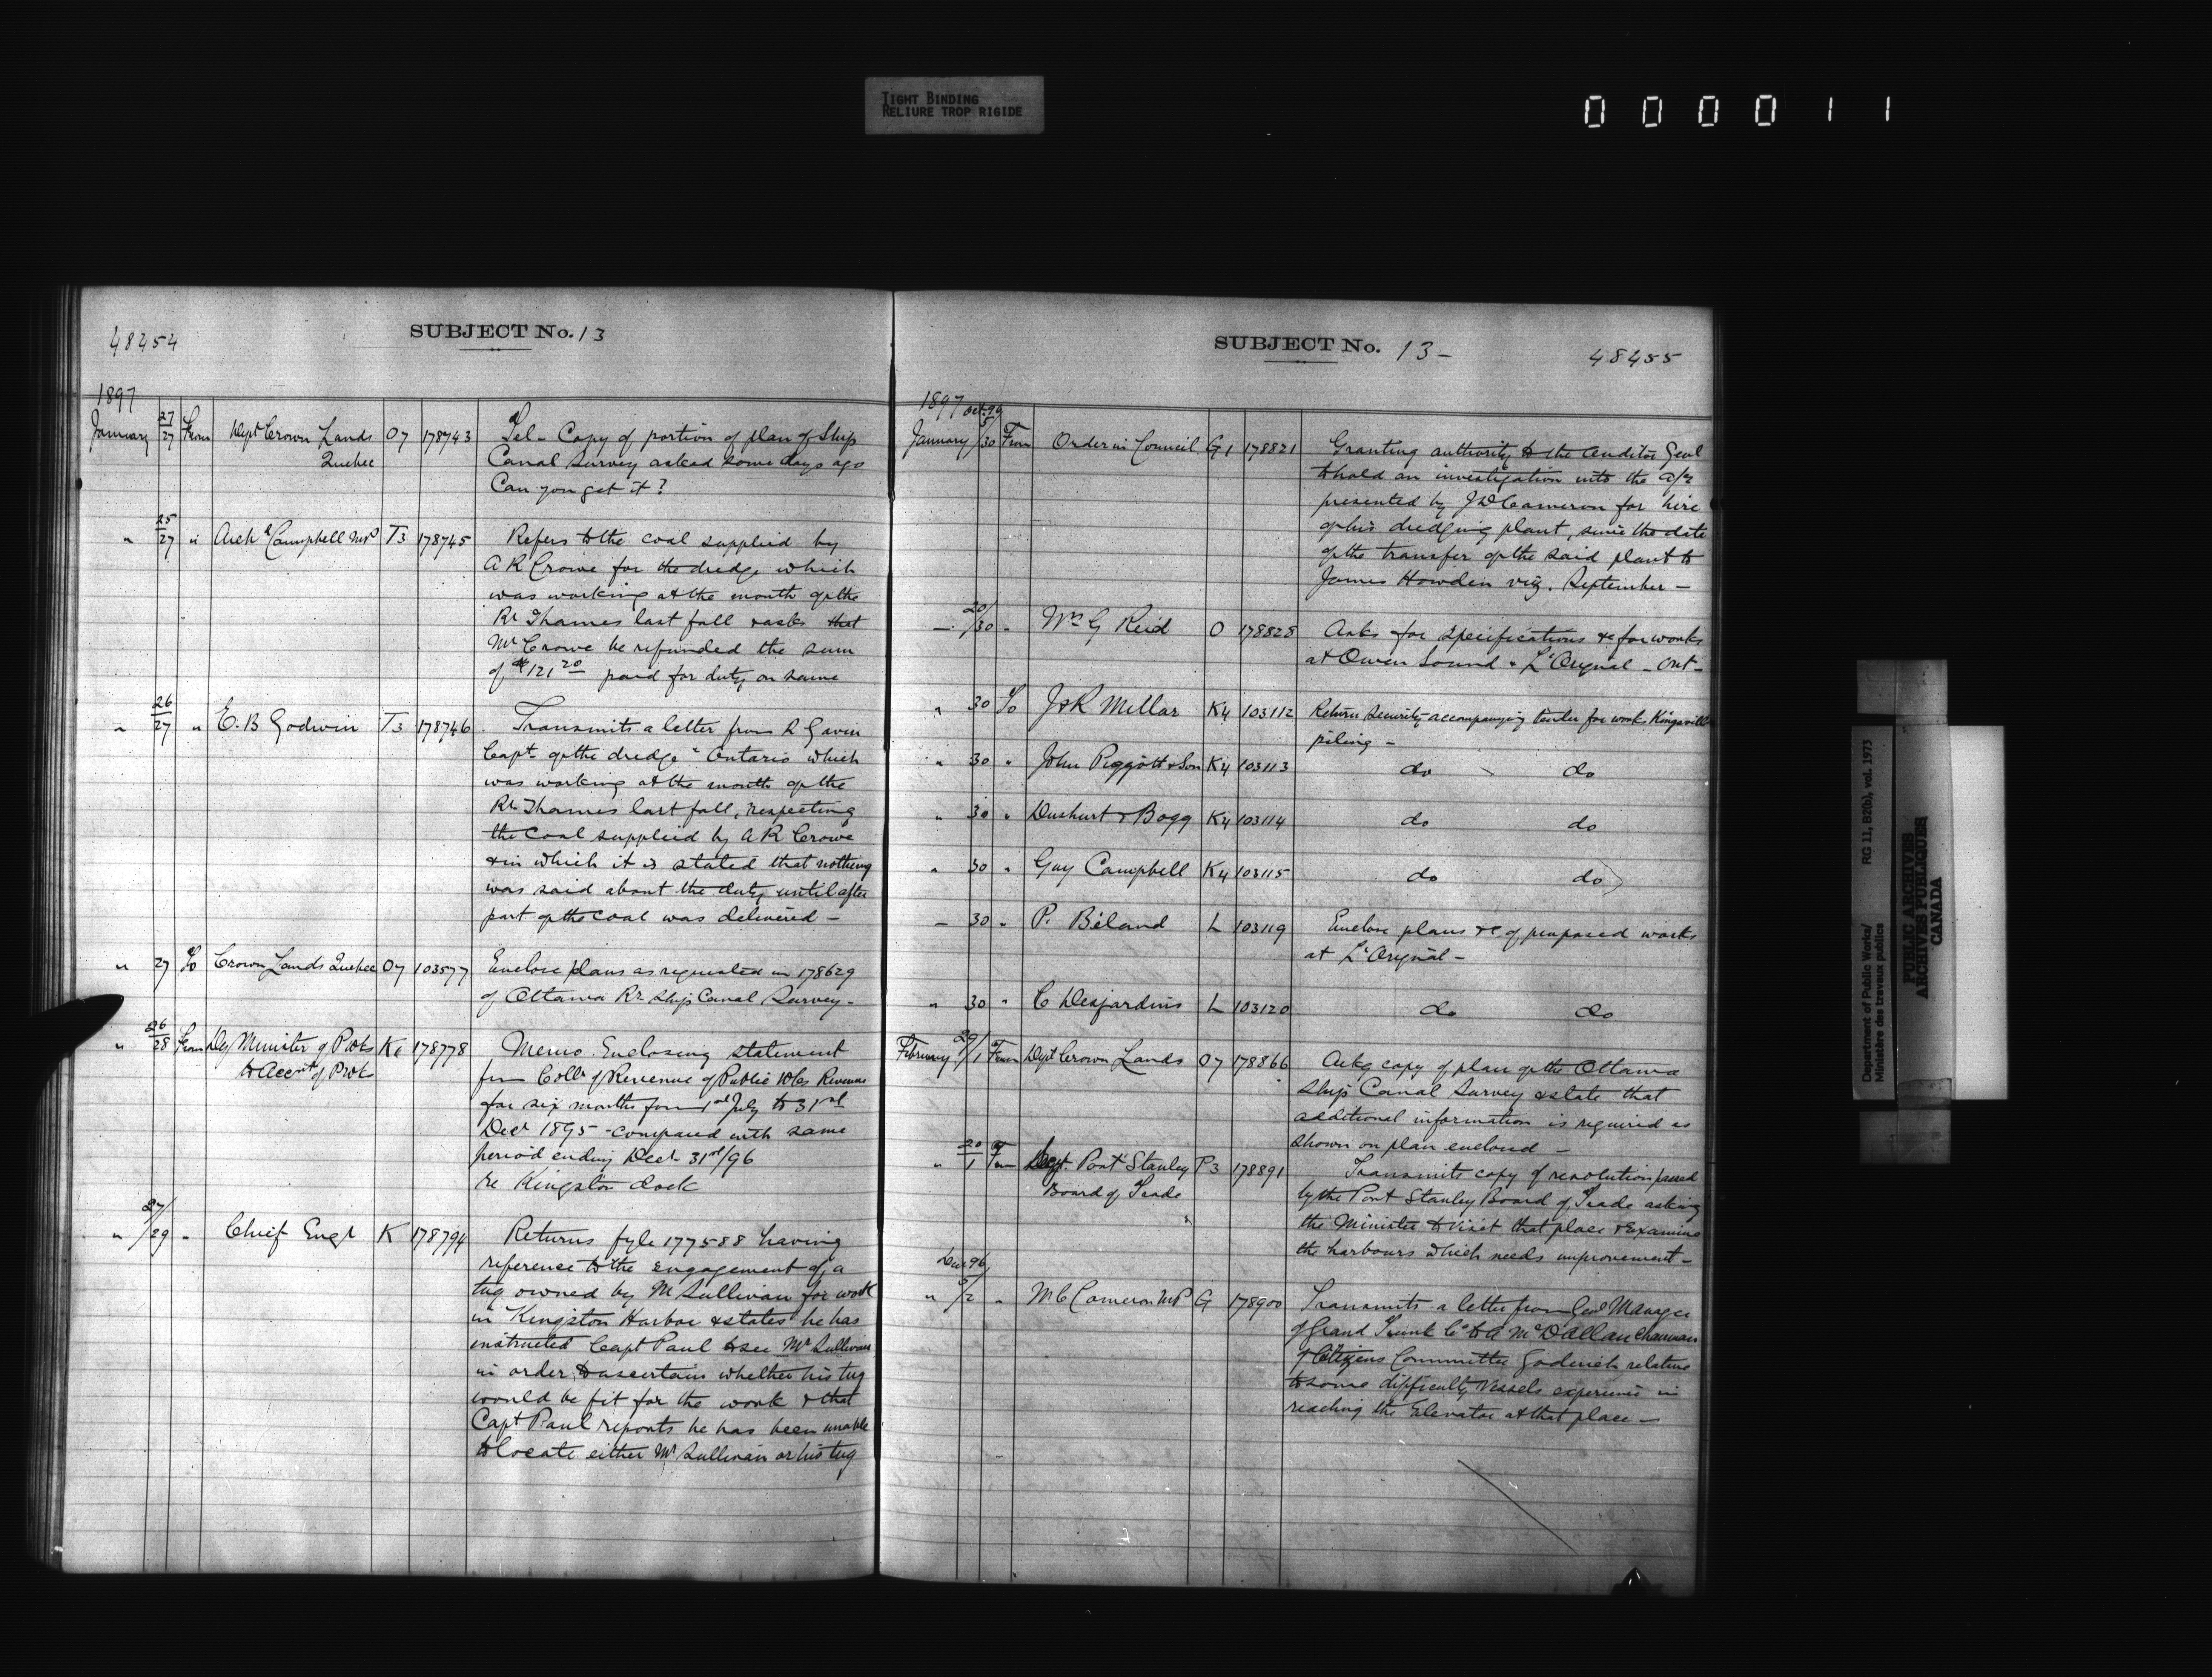 TIGHT BINDING
RELIURE TROP RIGIDE
0 0 0 0 1 1
48454
SUBJECT No. 13
1897
January 27/27 From Dept Crown Lands O7 178743 Tel - Copy of portion of plan of Ship
Quebec Canal Survey asked some days ago
Can you get it?
" 25/27 " Archd Campbell MP T3 178745 Refers to the coal supplied by
A R Crowe for the dredge which
was working at the mouth of the
Rr Thames last fall & asks that
Mr Crowe be refunded the sum
of $121 20 paid for duty on same
" 26/27 " E. B Godwin T3 178746 Transmits a letter from R Gavin
Capt of the dredge "Ontario which
was working at the mouth of the
Rr Thames last fall, respecting
the coal supplied by A R Crowe
& in which it is stated that nothing
was said about the duty until after
part of the coal was delivered -
" 27 To Crown Lands Quebec O7 103577 Enclose plans as requested in 178629
of Ottawa Rr Ship Canal Survey -
" 26/28 From Dy Minister of P Wks K6 178778 Memo Enclosing statement
to Accnt of P Wk fm Collr of Revenue of Public Wks Revenue
for six months from 1st July to 31st
Decr 1895 - compared with same
period ending Decr 31st/96
re Kingston dock
" 27/29 " Chief Engr K 178794 Returns fyle 177588 having
reference to the engagement of a
tug owned by M Sullivan for work
in Kingston Harbor & states he has
instructed Capt Paul to see Mr Sullivan
in order to ascertain whether his tug
would be fit for the work & that
Capt Paul reports he has been unable
to locate either Mr Sullivan or his tug
SUBJECT No. 13 -
48455
1897
January Oct. 96 5/30 From Order in Council G1 178821 Granting authority to the Auditor Genl
to hold an investigation into the a/c
presented by J D Cameron for hire
of his dredging plant, since the date
of the transfer of the said plant to
James Howden viz. September -
" 20/30 " Wm G Reid O 178828 Asks for specifications &c for works
at Owen Sound & L'Orignal - Ont -
" 30 To J & R Millar K4 103112 Return security accompanying tender for work Kingsville
piling -
" 30 " John Piggott & Son K4 103113 do do
" 30 " Bogg K4 103114 do do
" 30 " Guy Campbell K4 103115 do do
" 30 " P. Béland L 103119 Enclose plans &c of proposed works
at L'Orignal -
" 30 " C Desjardins L 103120 do do
February 29/1 From Dept Crown Lands O7 178866 Ackg copy of plan of the Ottawa
Ship Canal Survey & state that
additional information is required as
shown on plan enclosed -
" 30/1 From Port Stanley P3 178891 Transmits copy of resolution passed
Board of Trade by the Port Stanley Board of Trade asking
the Minister to visit that place & Examine
the harbours which needs improvement -
Dec 96
" 9/2 " M C Cameron MP G 178900 Transmits a letter from Genl Manager
of Grand Trunk Co to A McD Allan Chairman
of Citizens Committee Goderich relative
to some difficulty Vessels experience in
reaching the Elevator at that place -
Department of Public Works/ RG 11, B2(b), vol. 1973
Ministère des travaux publics
PUBLIC ARCHIVES
ARCHIVES PUBLIQUES
CANADA